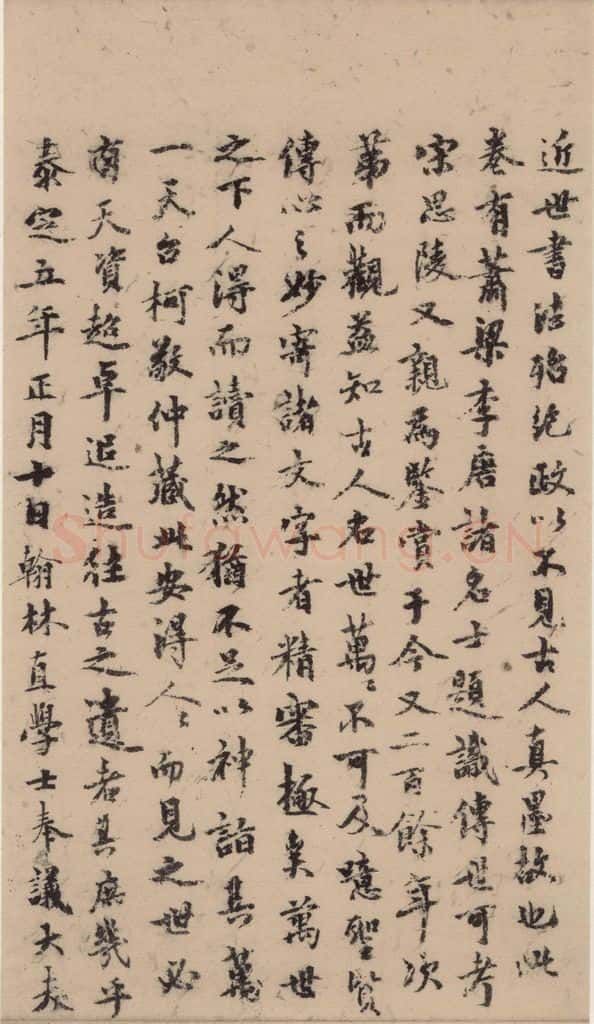 近世書法殆絕政以不見古人真墨故也此
卷有蕭梁李唐諸名士題識傳世可考
宋思陵又親為鑒賞于今又二百餘年次
第而觀益知古人名世萬〻不可及噫聖賢
傳心之妙寄諸文字者精審極矣萬世
之下人得而讀之然猶不足以神詣其萬
一天台柯敬仲藏此安得人〻而見之世必
有天資超卓追造往古之遺者其庶幾乎
泰定五年正月十日翰林直學士奉議大夫
Shufawang.CN